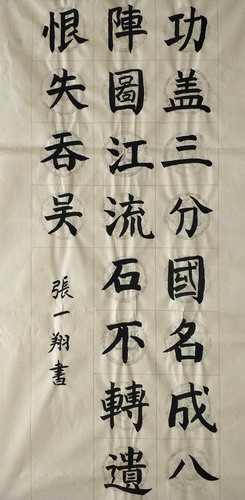 功盖三分國名成八
陣圖江流石不轉遺
恨失吞吴
張一翔書